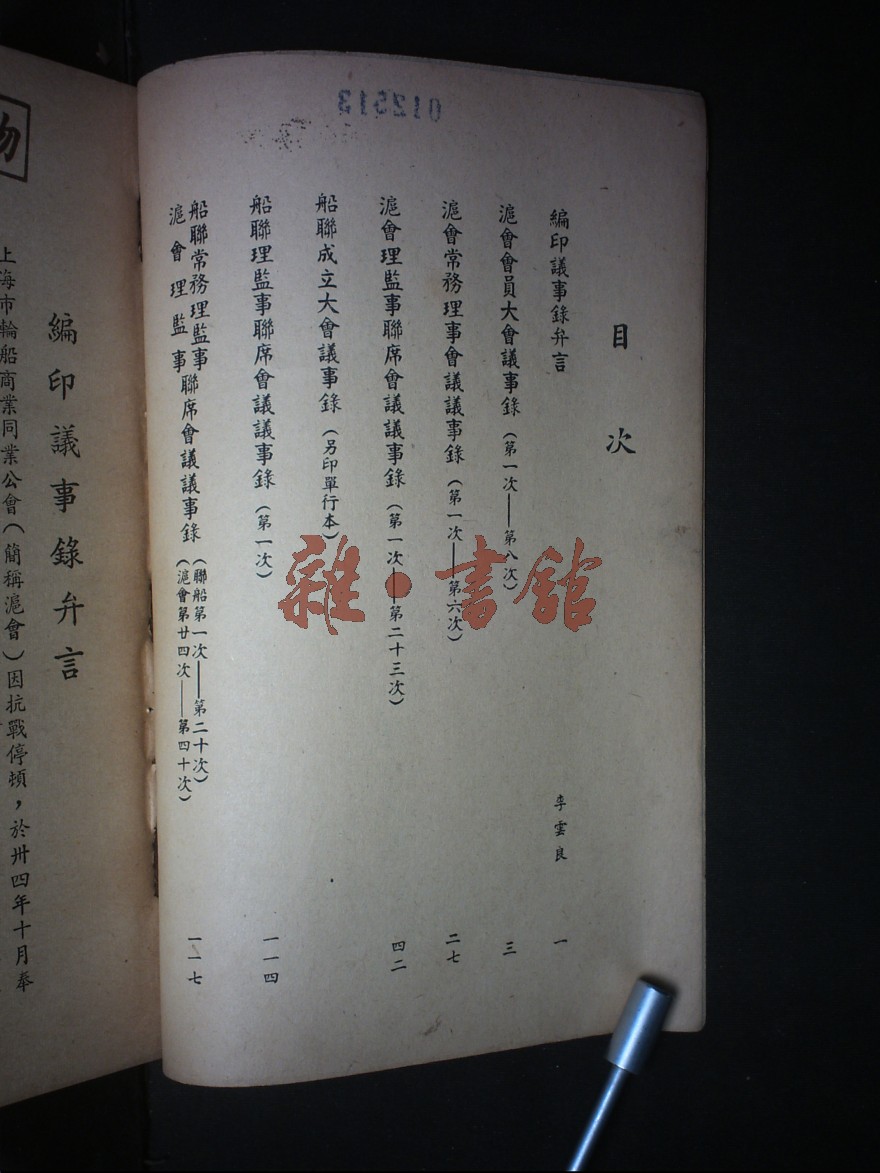 012513
目次
編印議事錄弁言 李雲良 一
滬會會員大會議事錄（第一次——第八次） 三
滬會常務理事會議議事錄（第一次——第六次） 二七
滬會理監事聯席會議議事錄（第一次——第二十三次） 四二
船聯成立大會議事錄（另印單行本）
船聯理監事聯席會議議事錄（第一次） 一一四
船聯常務理監事
滬會理監事
聯席會議議事錄
（聯船第一次——第二十次）
（滬會第廿四次——第四十次）
一一七
雜·書館
編印議事錄弁言
上海市輪船商業同業公會（簡稱滬會）因抗戰停頓，於卅四年十月奉